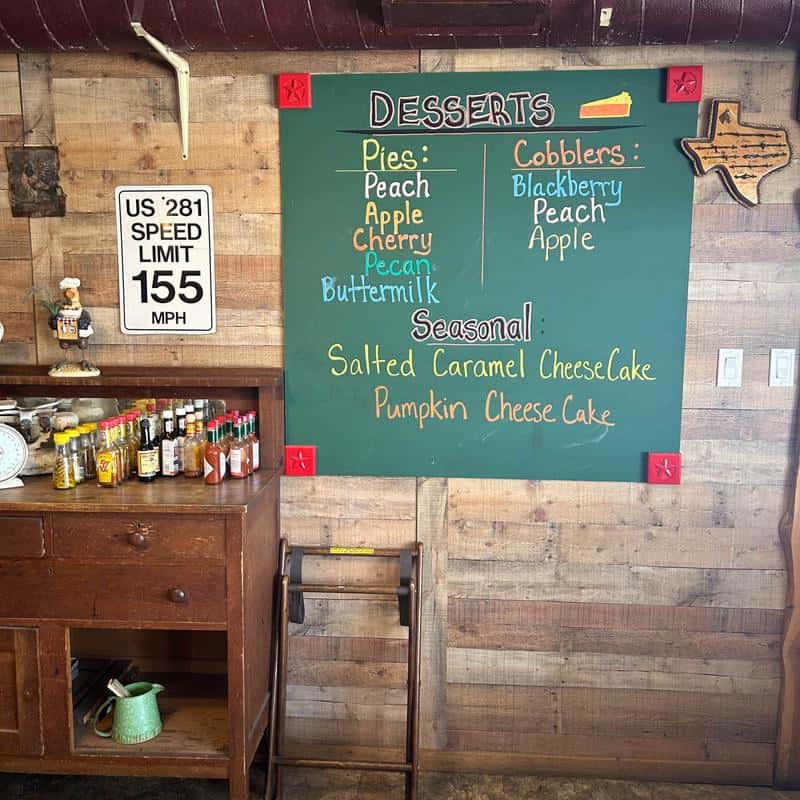 US 281
SPEED
LIMIT
155
MPH
DESSERTS
Pies:
Peach
Apple
Cherry
Pecan
Buttermilk
Cobblers:
Blackberry
Peach
Apple
Seasonal:
Salted Caramel CheeseCake
Pumpkin Cheese Cake